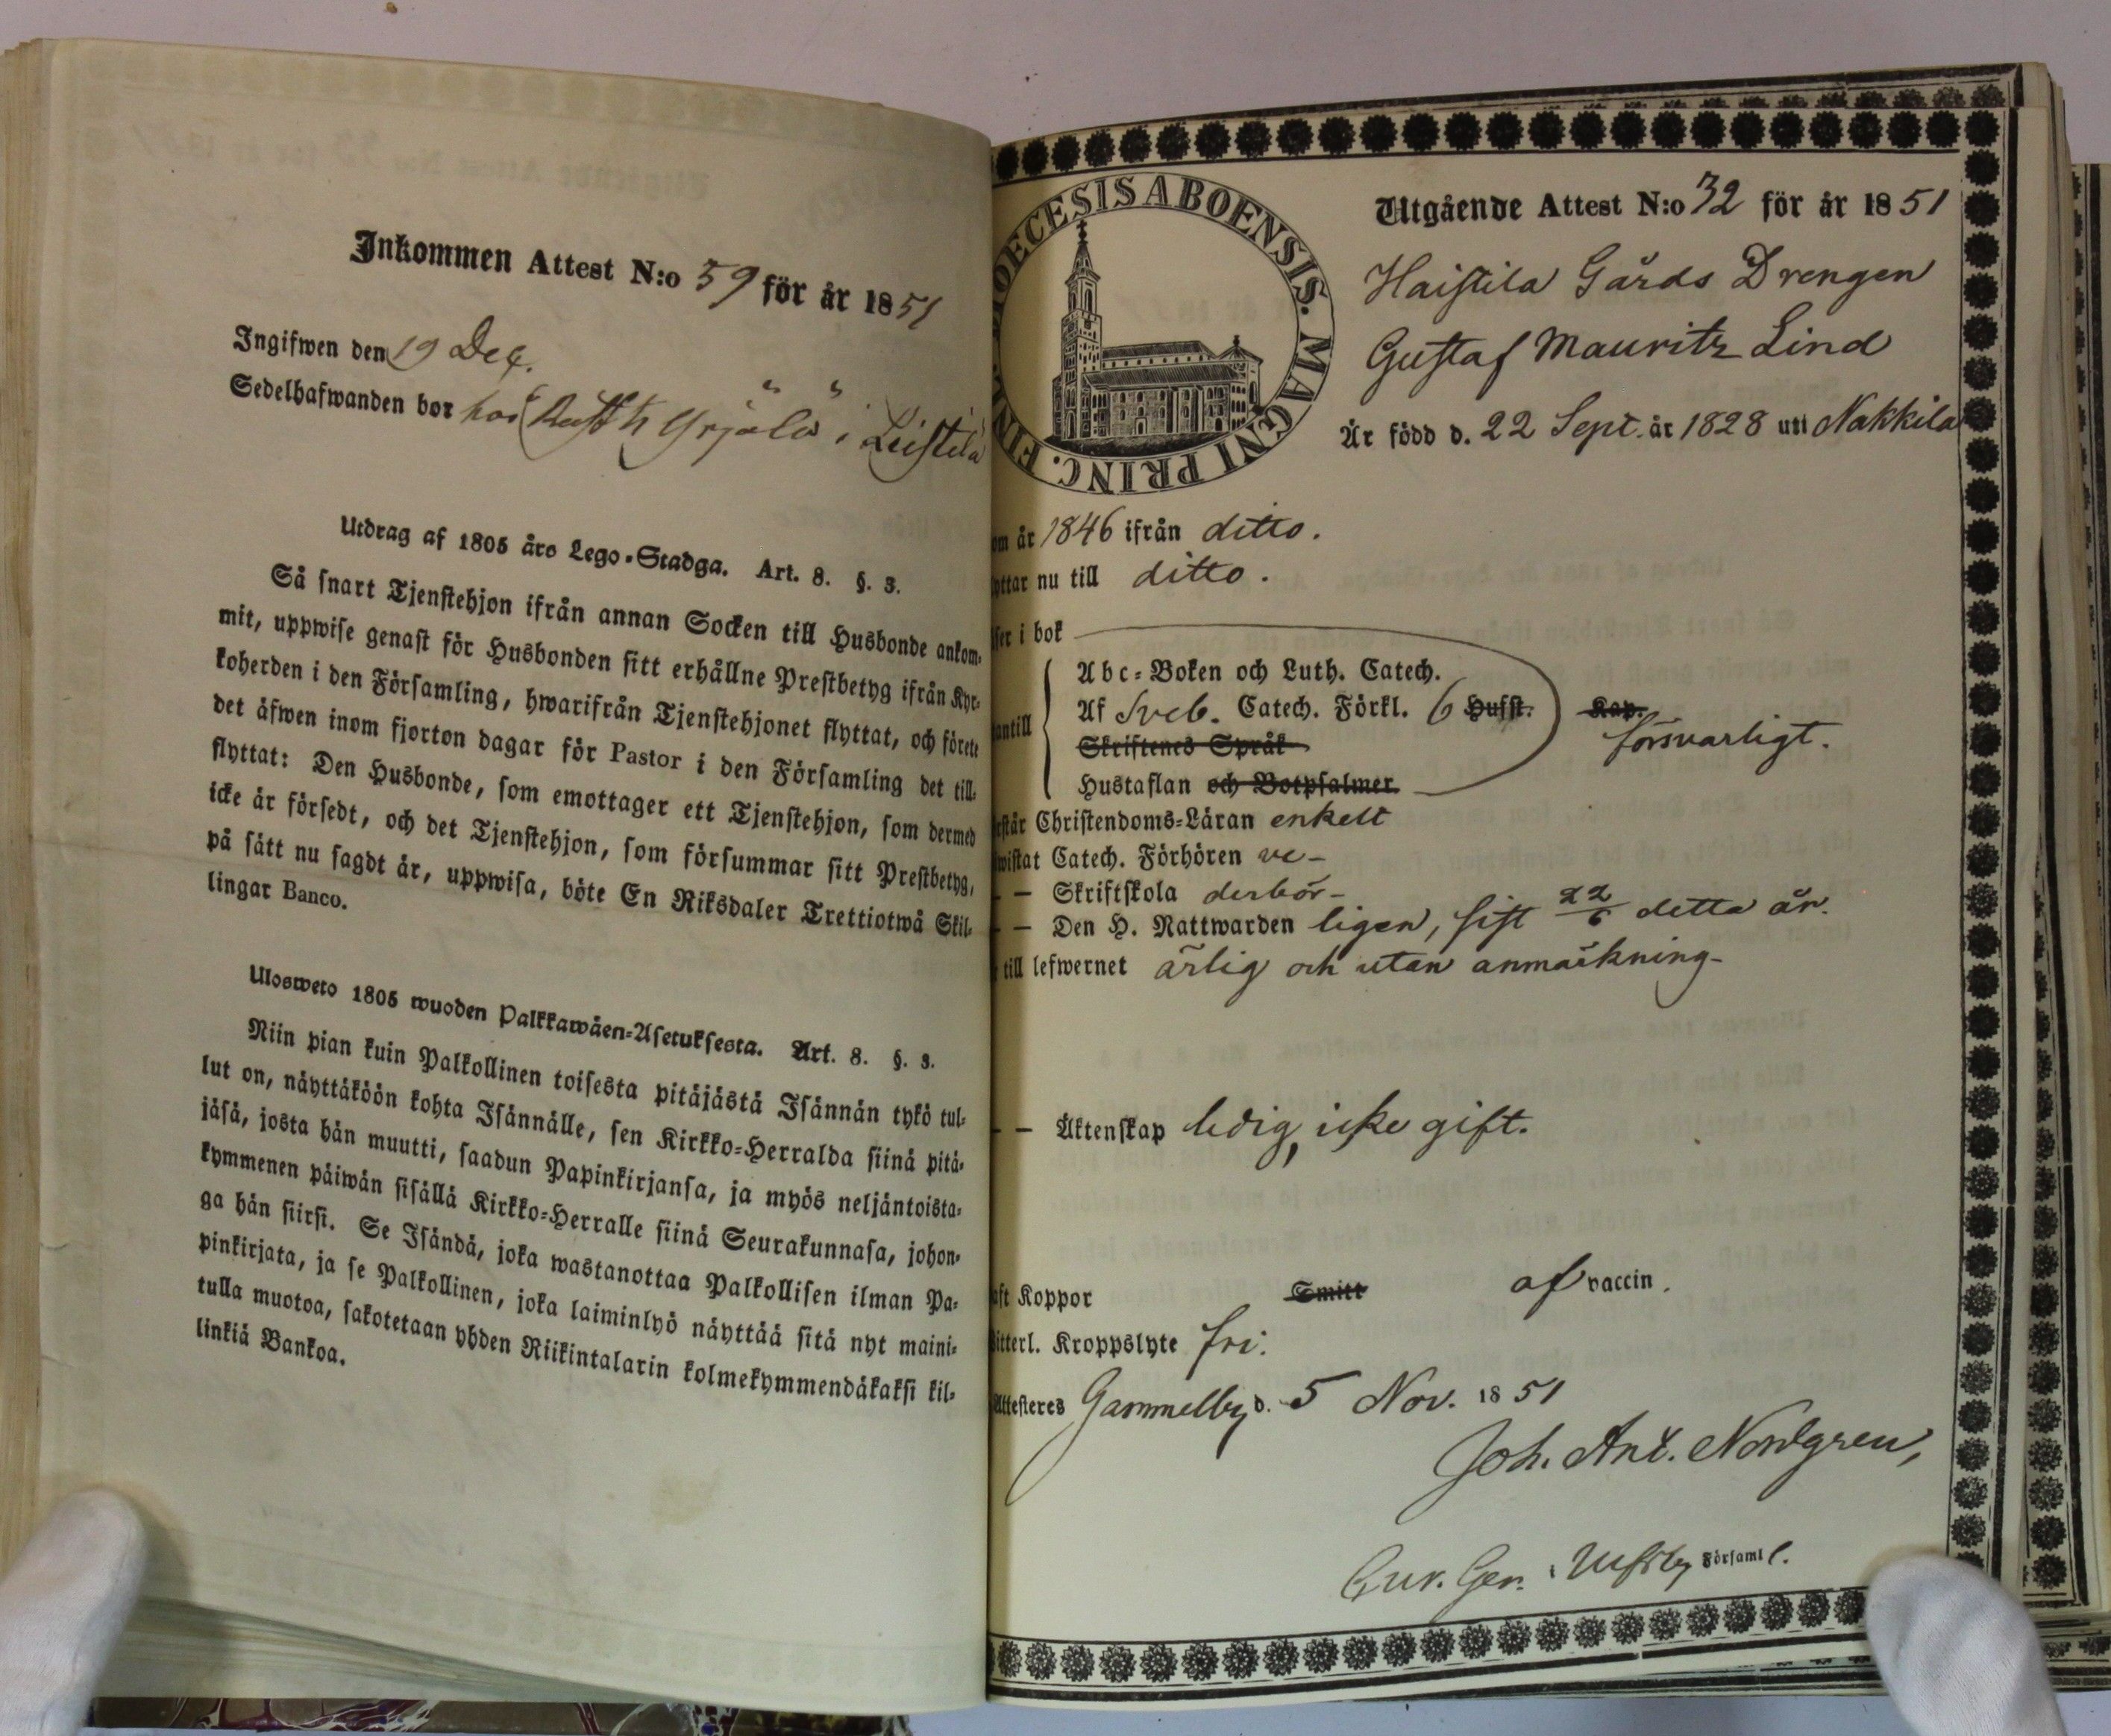 Inkommen Attest N:o 59 för år 1851
Ingifwen den 19 Dec.
Sedelhafwanden bor hos Yrjälä i Leistilä
Utdrag af 1805 års Lego-Stadga. Art. 8. §. 3.
Så snart Tjenstehjon ifrån annan Socken till Husbonde ankom-
mit, uppwise genast för Husbonden sitt erhållne Prestbetyg ifrån Kyr-
koherden i den Församling, hwarifrån Tjenstehjonet flyttat, och förete
det äfwen inom fjorton dagar för Pastor i den Församling det till-
flyttat: Den Husbonde, som emottager ett Tjenstehjon, som dermed
icke är försedt, och det Tjenstehjon, som försummar sitt Prestbetyg,
på sätt nu sagdt är, uppwisa, böte En Riksdaler Trettiotwå Skil-
lingar Banco.
Ulosweto 1805 wuoden Palkkawäen-Asetuksesta. Art. 8. §. 3.
Niin pian kuin Palkollinen toisesta pitäjästä Isännän tykö tul-
lut on, näyttäköön kohta Isännälle, sen Kirkko-Herralda siinä pitä-
jäsä, josta hän muutti, saadun Papinkirjansa, ja myös neljäntoista-
kymmenen päiwän sisällä Kirkko-Herralle siinä Seurakunnasa, johon-
ga hän siirsi. Se Isändä, joka wastanottaa Palkollisen ilman Pa-
pinkirjata, ja se Palkollinen, joka laiminlyö näyttää sitä nyt maini-
tulla muotoa, sakotetaan yhden Riikintalarin kolmekymmendäkaksi kil-
linkiä Bankoa.
DIOECESIS ABOENSIS. MAGNI PRINC. FIN
Utgående Attest N:o 32 för år 1851
Haistila Gårds Drengen
Gustaf Mauritz Lind
Är född d. 22 Sept. år 1828 uti Nakkila
om år 1846 ifrån ditto.
yttar nu till ditto.
ser i bok
antill
Abc-Boken och Luth. Catech.
Af Sveb. Catech. Förkl. 6 Hufst. Kap.
försvarligt.
Skriftenes Språk
Hustaflan och Botpsalmer.
rstår Christendoms-Läran enkelt
wistat Catech. Förhören ve-
– – Skriftskola derbör-
– – Den H. Nattwarden ligen, sist 22/6 detta år.
till lefwernet ärlig och utan anmärkning-
– – Äktenskap ledig, icke gift.
aft Koppor Smitt af vaccin.
itterl. Kroppslyte fri.
Attesteres Gammelby d. 5 Nov. 1851
Joh. Ant. Nordgren,
Cur. Ger. i Ulfsby Församl.